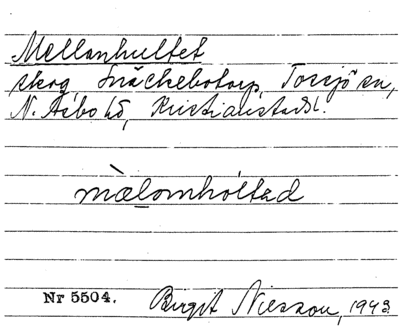 Mellanhultet
skog, Snäckebotorp, Tossjö sn,
N. Åsbo hd, Kristianstads l.
mæ̀lomhóltəd
Nr 5504.
Birgit Nilsson, 1943.